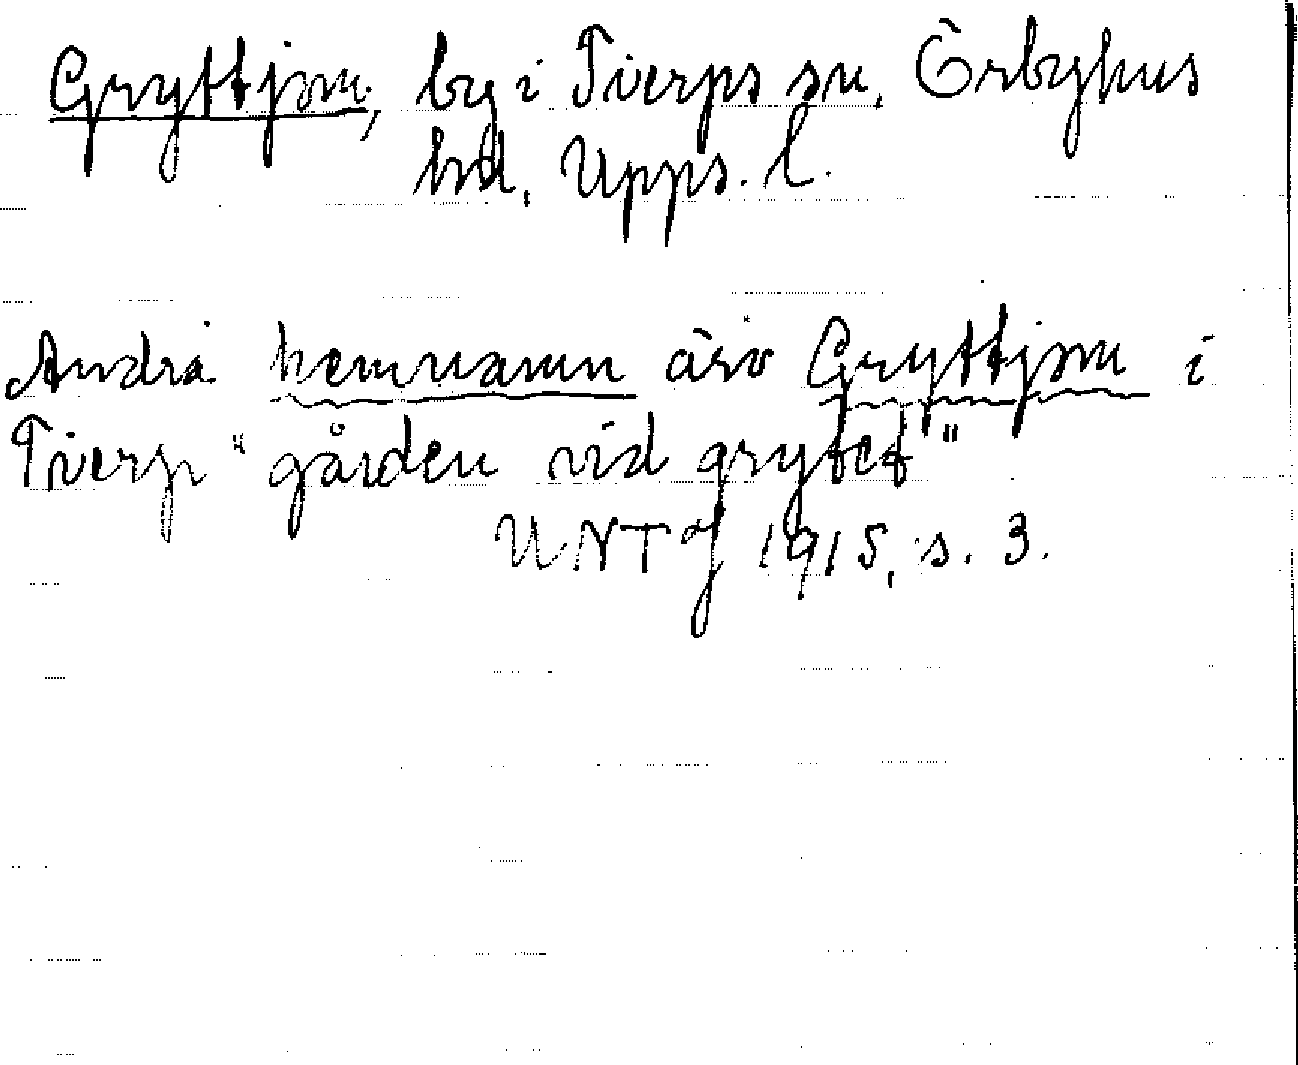 Gryttjom, by i Tierps sn, Örbyhus
hd, Upps. l.
Andra hemmanamn äro Gryttjom i
Tierp "gården vid grytet"
UNT J 1915, s. 3.